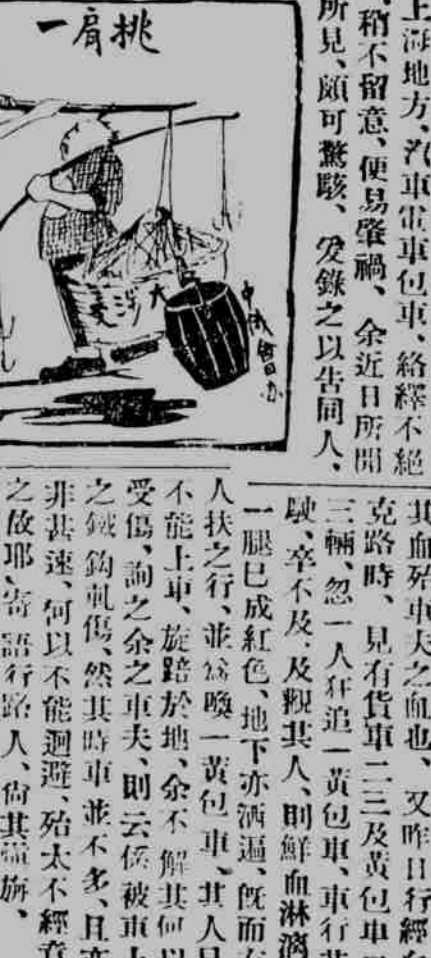 上海地方、汽車電車包車、絡繹不絕
稍不留意、便易肇禍、余近日所聞
所見、頗可驚駭、爰錄之以告同人、
一肩挑
大
中俄會办
其血殆車夫之血也、又昨日行經
克路時、見有貨車二三及黃包車
三輛、忽一人狂追一黃包車、車行甚
駛、卒不及、及觀其人、則鮮血淋漓
一腿已成紅色、地下亦洒遍、旣而
人扶之行、並爲喚一黃包車、其人
不能上車、旋踣於地、余不解其何以
受傷、詢之余之車夫、則云係被車上
之鐵鈎軋傷、然其時車並不多、且
非甚速、何以不能迴避、殆太不經意
之故耶、寄語行路人、尙其愼旃、